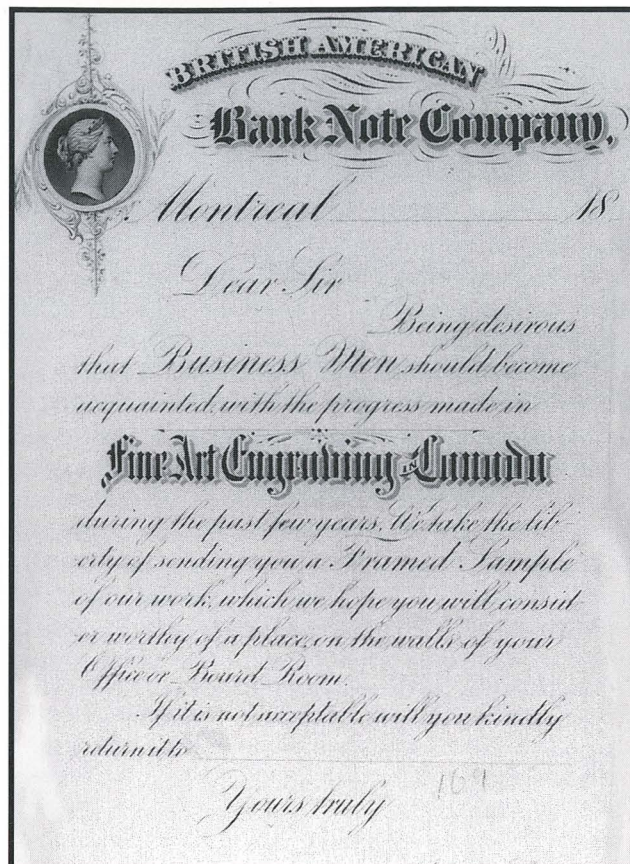 BRITISH AMERICAN
Bank Note Company,
Montreal 18
Dear Sir
Being desirous
that Business Men should become
acquainted with the progress made in
Fine Art Engraving IN Canada
during the past few years, We take the lib-
erty of sending you a Framed Sample
of our work, which we hope you will consid-
er worthy of a place on the walls of your
Office or Board Room.
If it is not acceptable will you kindly
return it to
Yours truly
169